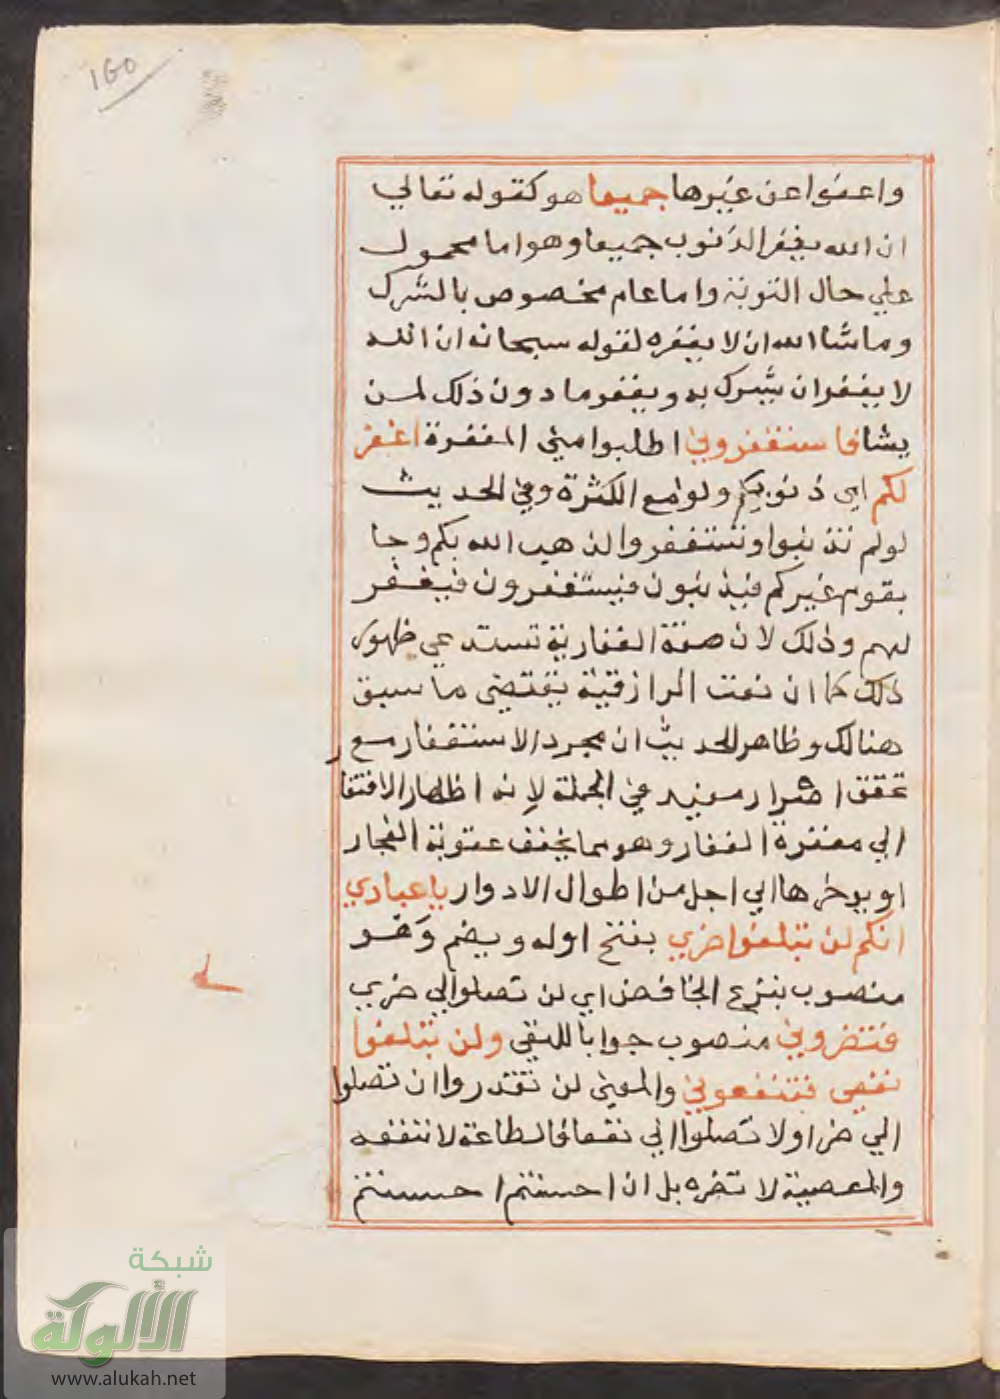 160
واعفوا عن غيرها جميعا هو كقوله تعالي
ان الله يغفر الذنوب جميعا وهو اما محمول
علي حال التوبة واما عام مخصوص بالشرك
وما شا الله ان لا يغفره لقوله سبحانه ان الله
لا يغفر ان يشرك به ويغفر ما دون ذلك لمن
يشا فاستغفروني اطلبوا مني المغفرة اغفر
لكم اي ذنوبكم ولو مع الكثرة وفي الحديث
لو لم تذنبوا وتستغفروا لذهب الله بكم وجا
بقوم غيركم فيذنبون فيستغفرون فيغفر
لهم وذلك لان صفة الغفارية تستدعي ظهور
ذلك كما ان نعت الرازقية يقتضي ما سبق
هنالك وظاهر الحديث ان مجرد الاستغفار مع
تحقق اصرار مفيد في الجملة لانه اظهار الافتقار
الي مغفرة الغفار وهو مما يخفف عقوبة الفجار
او يوخرها الي اجل من اطوال الادوار يا عبادي
انكم لن تبلغوا ضري بفتح اوله ويضم وهو
منصوب بنزع الخافض اي لن تصلوا الي ضري
فتضروني منصوب جوابا للنفي ولن تبلغوا
نفعي فتنفعوني والمعني لن تقدروا ان تصلوا
الي ضر او لا تصلوا الي نفع فالطاعة لا تنفعه
والمعصية لا تضره بل ان احسنتم احسنتم
شبكة
الألوكة
www.alukah.net